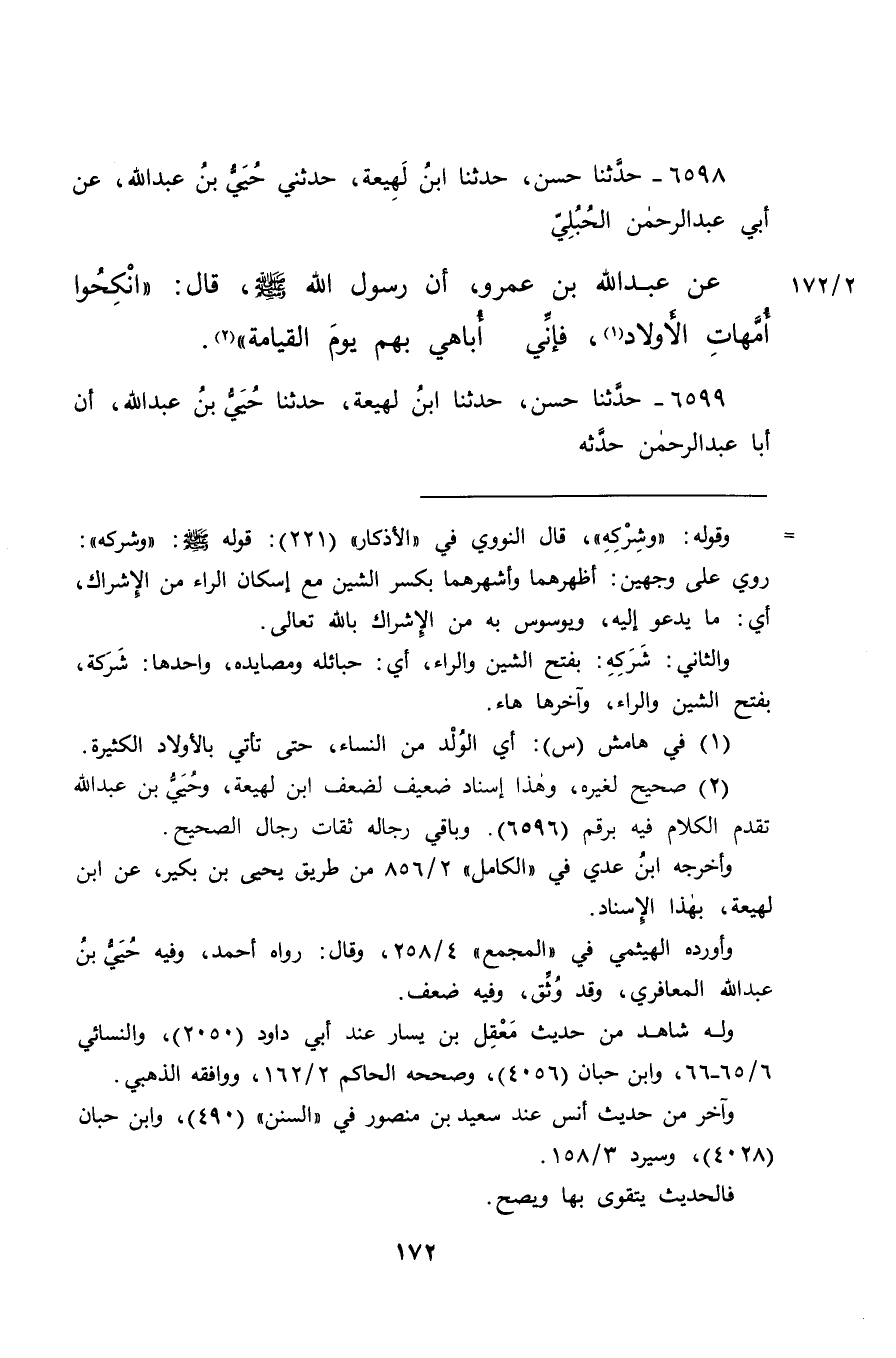 ٦٥٩٨ ـ حدَّثنا حسن، حدثنا ابنُ لَهِيعة، حدثني حُيَيُّ بنُ عبدالله، عن
أبي عبدالرحمٰن الحُبُلِيّ
١٧٢/٢ عن عبـدالله بن عمرو، أن رسول الله ﷺ، قال: «انْكِحُوا
أُمَّهاتِ الأَولاد(١)، فإنِّي أُباهي بهم يومَ القيامة»(٢).
٦٥٩٩ ـ حدَّثنا حسن، حدثنا ابنُ لهيعة، حدثنا حُيَيُّ بنُ عبدالله، أن
أبا عبدالرحمٰن حدَّثه
= وقوله: «وشِرْكِهِ»، قال النووي في «الأذكار» (٢٢١): قوله ﷺ: «وشركه»:
روي على وجهين: أظهرهما وأشهرهما بكسر الشين مع إسكان الراء من الإِشراك،
أي: ما يدعو إليه، ويوسوس به من الإِشراك بالله تعالى.
والثاني: شَرَكِهِ: بفتح الشين والراء، أي: حبائله ومصايده، واحدها: شَرَكة،
بفتح الشين والراء، وآخرها هاء.
(١) في هامش (س): أي الوُلْد من النساء، حتى تأتي بالأولاد الكثيرة.
(٢) صحيح لغيره، وهٰذا إسناد ضعيف لضعف ابن لهيعة، وحُيَيُّ بن عبدالله
تقدم الكلام فيه برقم (٦٥٩٦). وباقي رجاله ثقات رجال الصحيح.
وأخرجه ابنُ عدي في «الكامل» ٨٥٦/٢ من طريق يحيى بن بكير، عن ابن
لهيعة، بهٰذا الإِسناد.
وأورده الهيثمي في «المجمع» ٢٥٨/٤، وقال: رواه أحمد، وفيه حُيَيُّ بنُ
عبدالله المعافري، وقد وُثِّق، وفيه ضعف.
ولـه شاهـد من حديث مَعْقِل بن يسار عند أبي داود (٢٠٥٠)، والنسائي
٦٥/٦ـ٦٦، وابن حبان (٤٠٥٦)، وصححه الحاكم ١٦٢/٢، ووافقه الذهبي.
وآخر من حديث أنس عند سعيد بن منصور في «السنن» (٤٩٠)، وابن حبان
(٤٠٢٨)، وسيرد ١٥٨/٣.
فالحديث يتقوى بها ويصح.
١٧٢